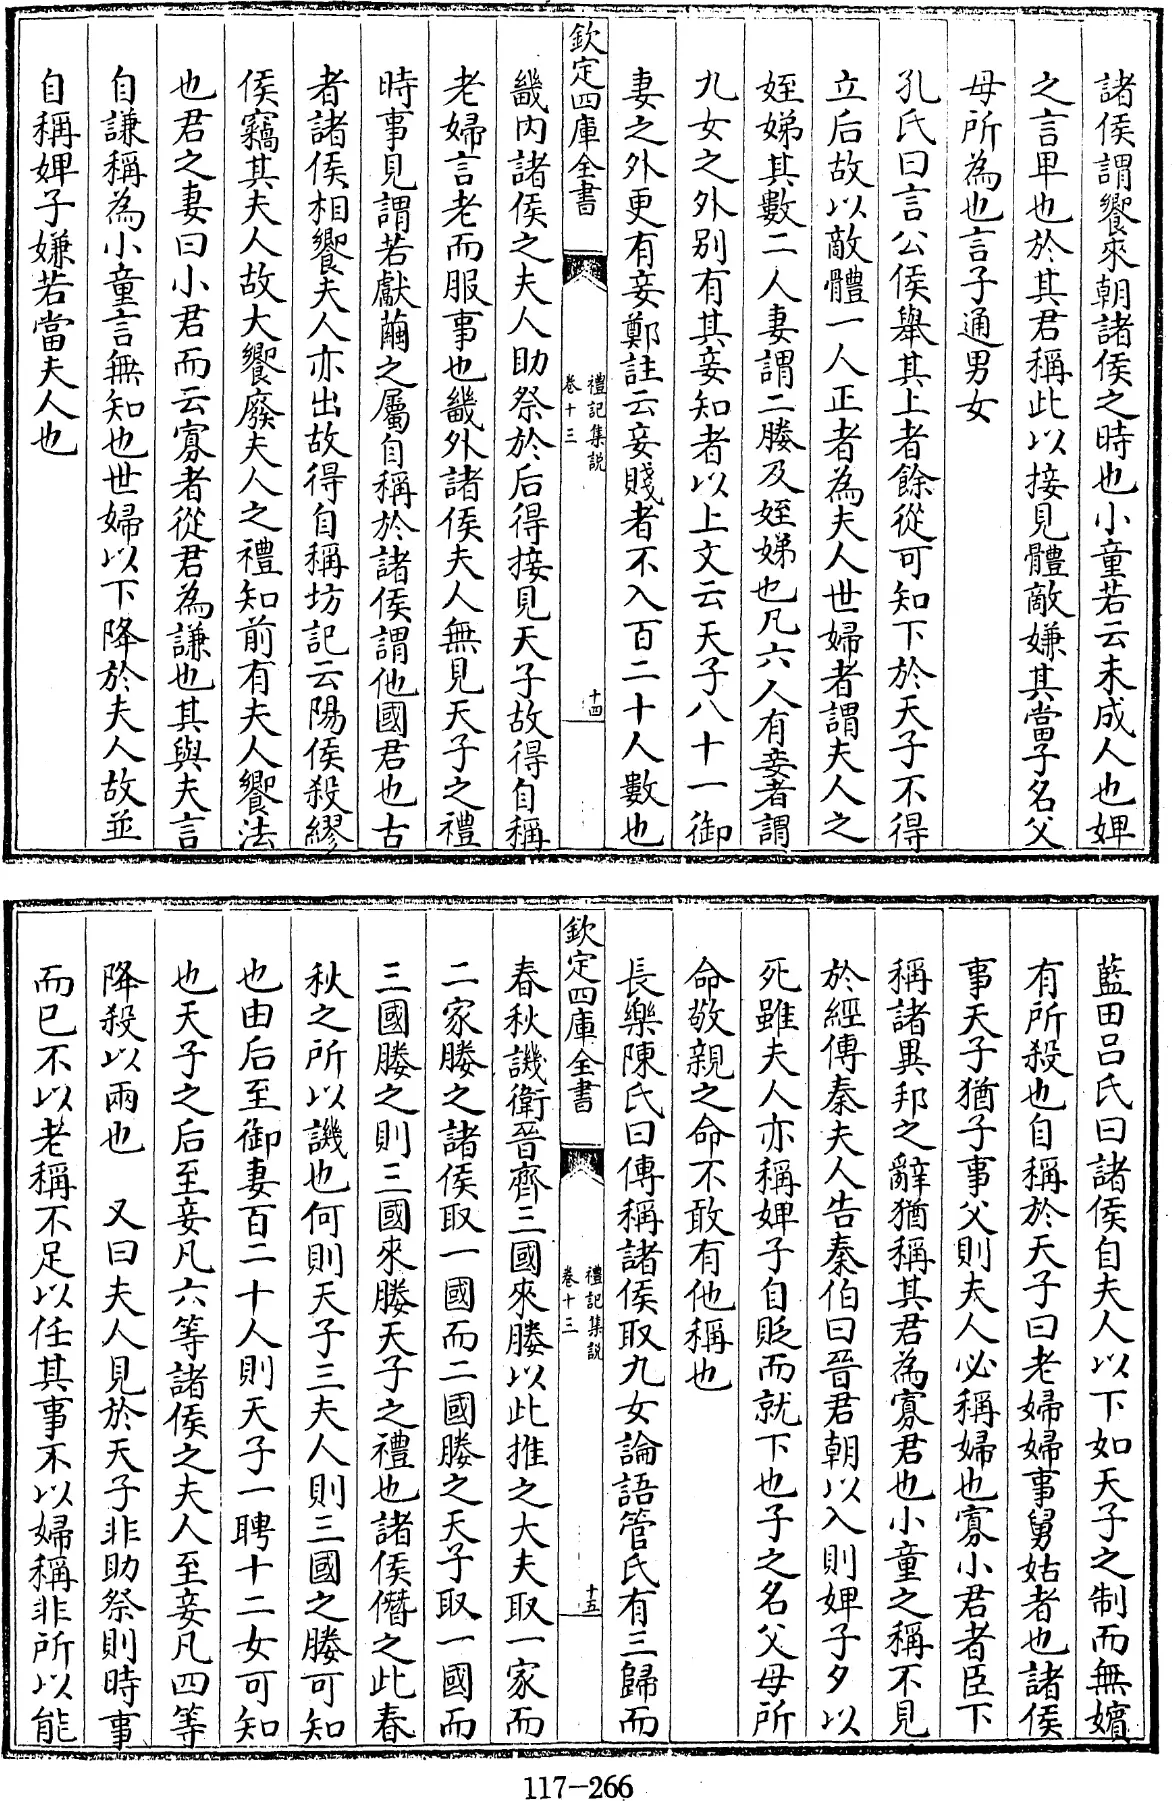 諸侯謂饗來朝諸侯之時也小童若云未成人也婢
之言卑也於其君稱此以接見體敵嫌其當子名父
母所為也言子通男女
孔氏曰言公侯舉其上者餘從可知下於天子不得
立后故以敵體一人正者為夫人世婦者謂夫人之
姪娣其數二人妻謂二媵及姪娣也凡六人有妾者謂
九女之外別有其妾知者以上文云天子八十一御
妻之外更有妾鄭註云妾賤者不入百二十人數也
欽定四庫全書
禮記集説
卷十三
十四
畿内諸侯之夫人助祭於后得接見天子故得自稱
老婦言老而服事也畿外諸侯夫人無見天子之禮
時事見謂若獻繭之屬自稱於諸侯謂他國君也古
者諸侯相饗夫人亦出故得自稱坊記云陽侯殺繆
侯竊其夫人故大饗廢夫人之禮知前有夫人饗法
也君之妻曰小君而云寡者從君為謙也其與夫言
自謙稱為小童言無知也世婦以下降於夫人故並
自稱婢子嫌若當夫人也
藍田吕氏曰諸侯自夫人以下如天子之制而無嬪
有所殺也自稱於天子曰老婦婦事舅姑者也諸侯
事天子猶子事父則夫人必稱婦也寡小君者臣下
稱諸異邦之辭猶稱其君為寡君也小童之稱不見
於經傳秦夫人告秦伯曰晉君朝以入則婢子夕以
死雖夫人亦稱婢子自貶而就下也子之名父母所
命敬親之命不敢有他稱也
長樂陳氏曰傳稱諸侯取九女論語管氏有三歸而
欽定四庫全書
禮記集説
卷十三
十五
春秋譏衛晉齊三國來媵以此推之大夫取一家而
二家媵之諸侯取一國而二國媵之天子取一國而
三國媵之則三國來媵天子之禮也諸侯僭之此春
秋之所以譏也何則天子三夫人則三國之媵可知
也由后至御妻百二十人則天子一聘十二女可知
也天子之后至妾凡六等諸侯之夫人至妾凡四等
降殺以兩也　又曰夫人見於天子非助祭則時事
而已不以老稱不足以任其事不以婦稱非所以能
117-266